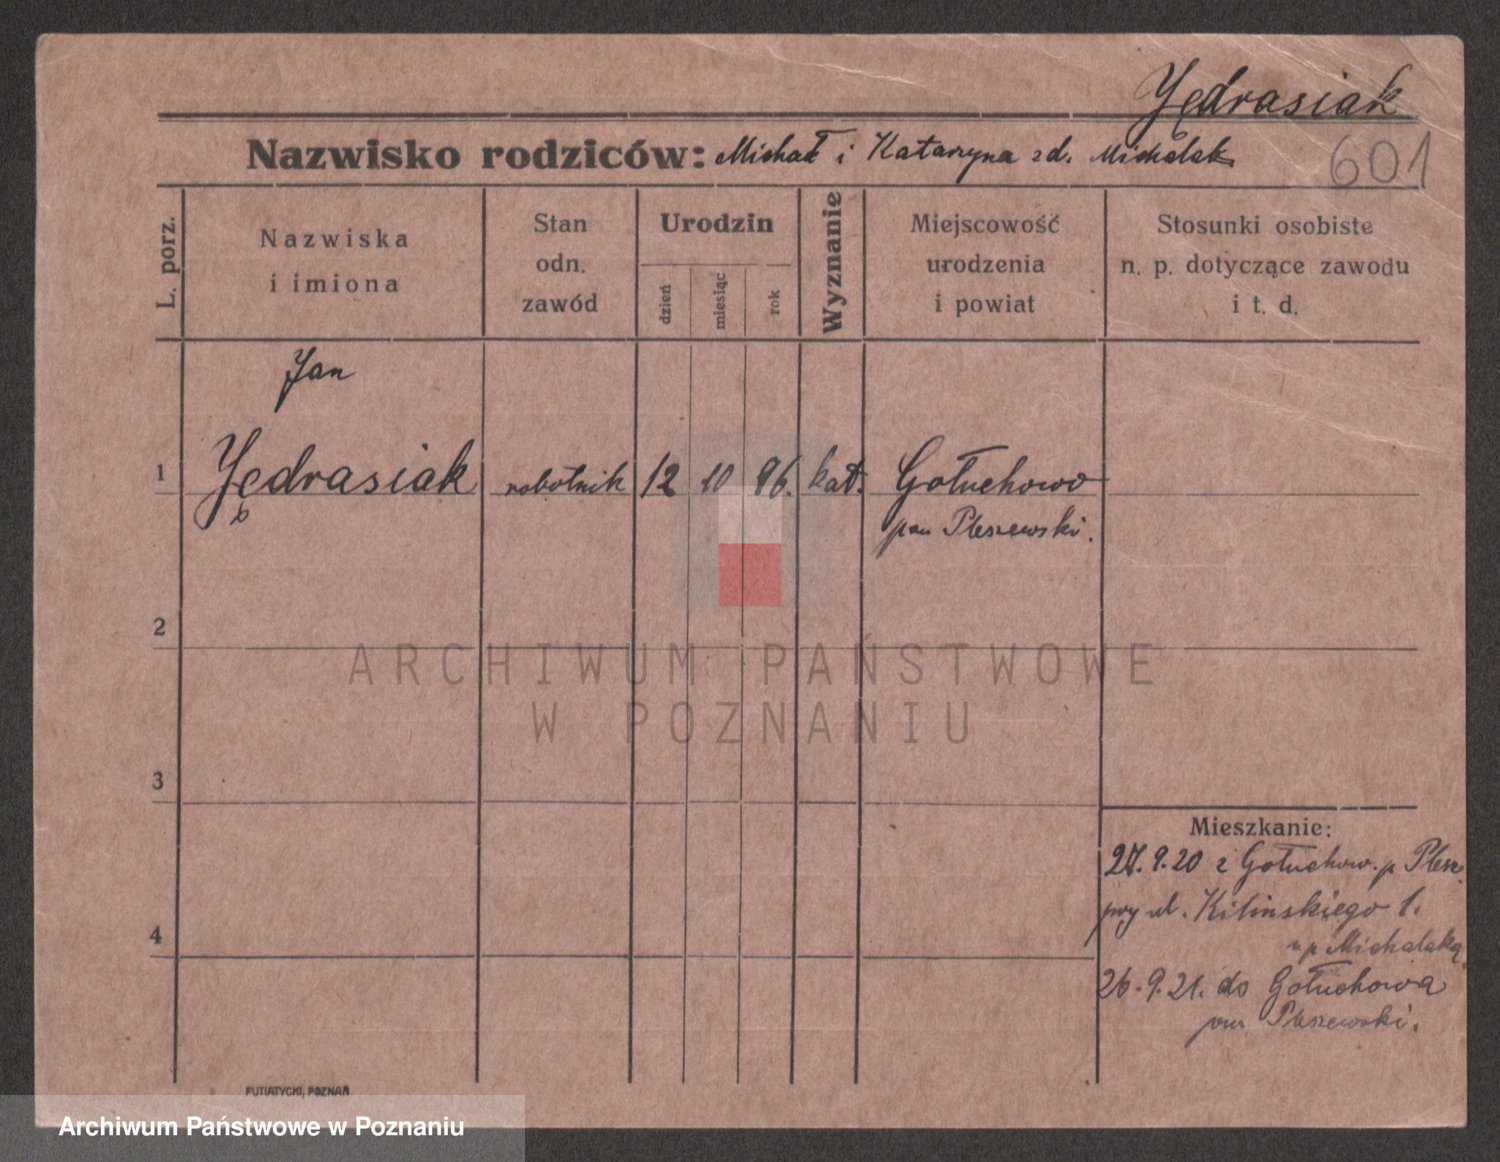 Jędrasiak
Nazwisko rodziców: Michał i Katarzyna zd. Michalak
601
L. porz.
Nazwiska
i imiona
Stan
odn.
zawód
Urodzin
dzień
miesiąc
rok
Wyznanie
Miejscowość
urodzenia
i powiat
Stosunki osobiste
n. p. dotyczące zawodu
i t. d.
Jan
1 Jędrasiak robotnik 12 10 96. kat. Gołuchowo
pow Pleszewski.
2
ARCHIWUM PAŃSTWOWE
W POZNANIU
3
Mieszkanie:
27.9.20 z Gołuchow. p Plesz.
przy ul. Kilinskiego 1.
u p Michalaka
4
26.9.21. do Gołuchowa
pow Pleszewski.
PUTIATYCKI, POZNAŃ
Archiwum Państwowe w Poznaniu